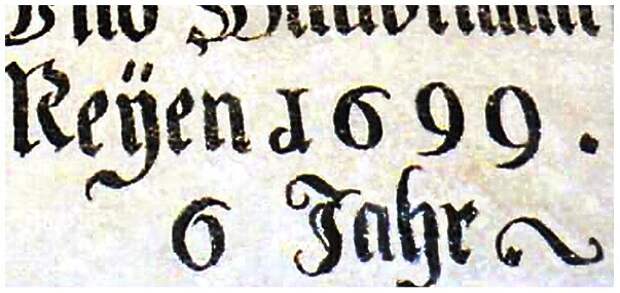 Reÿen 1699.
6 Jahr